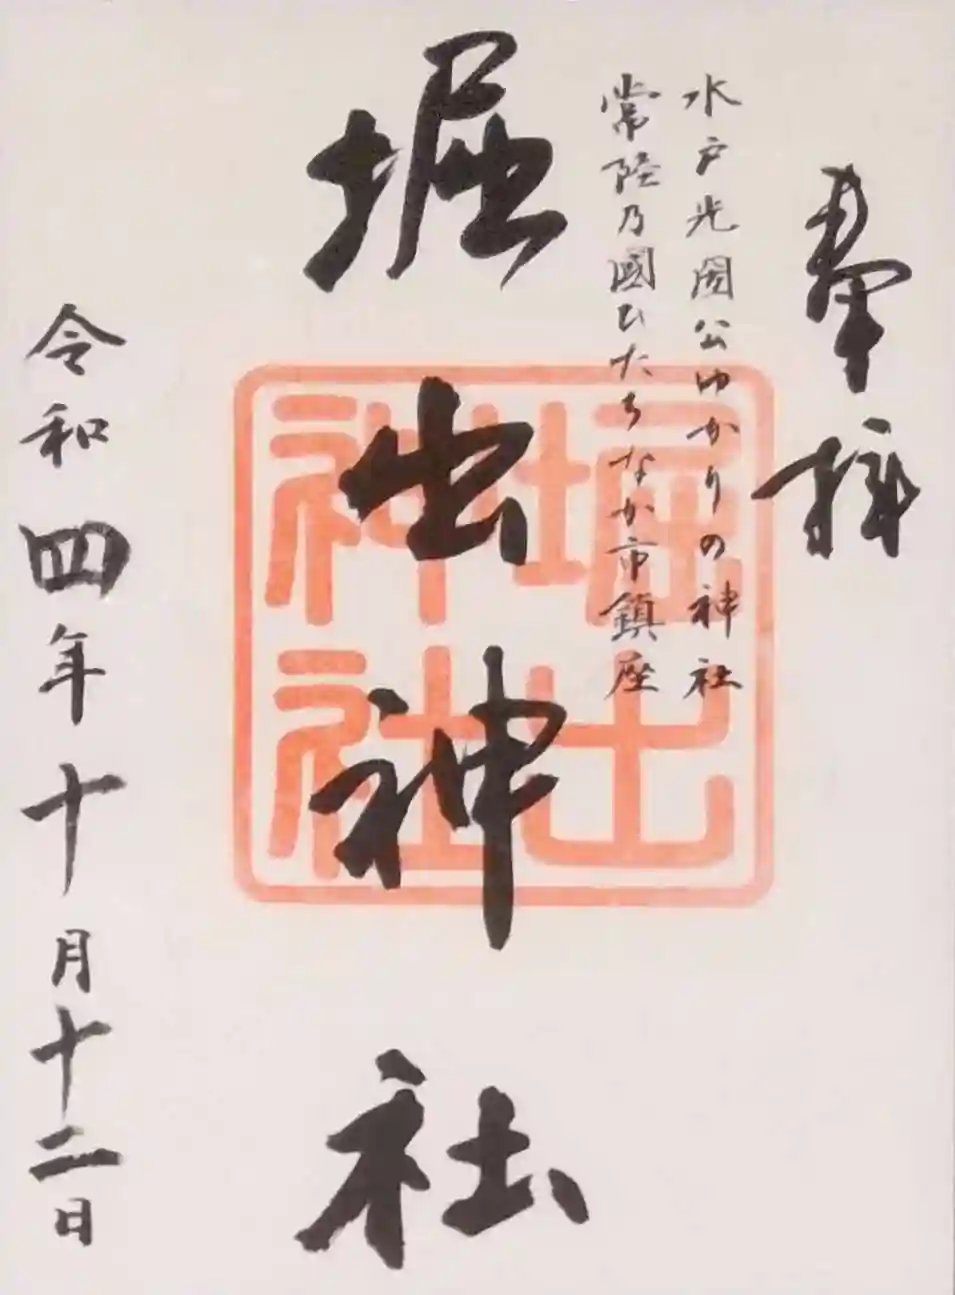 奉拝
水戸光圀公ゆかりの神社
常陸乃國ひたちなか市鎮座
堀出神社
堀出
神社
令和四年十月十二日